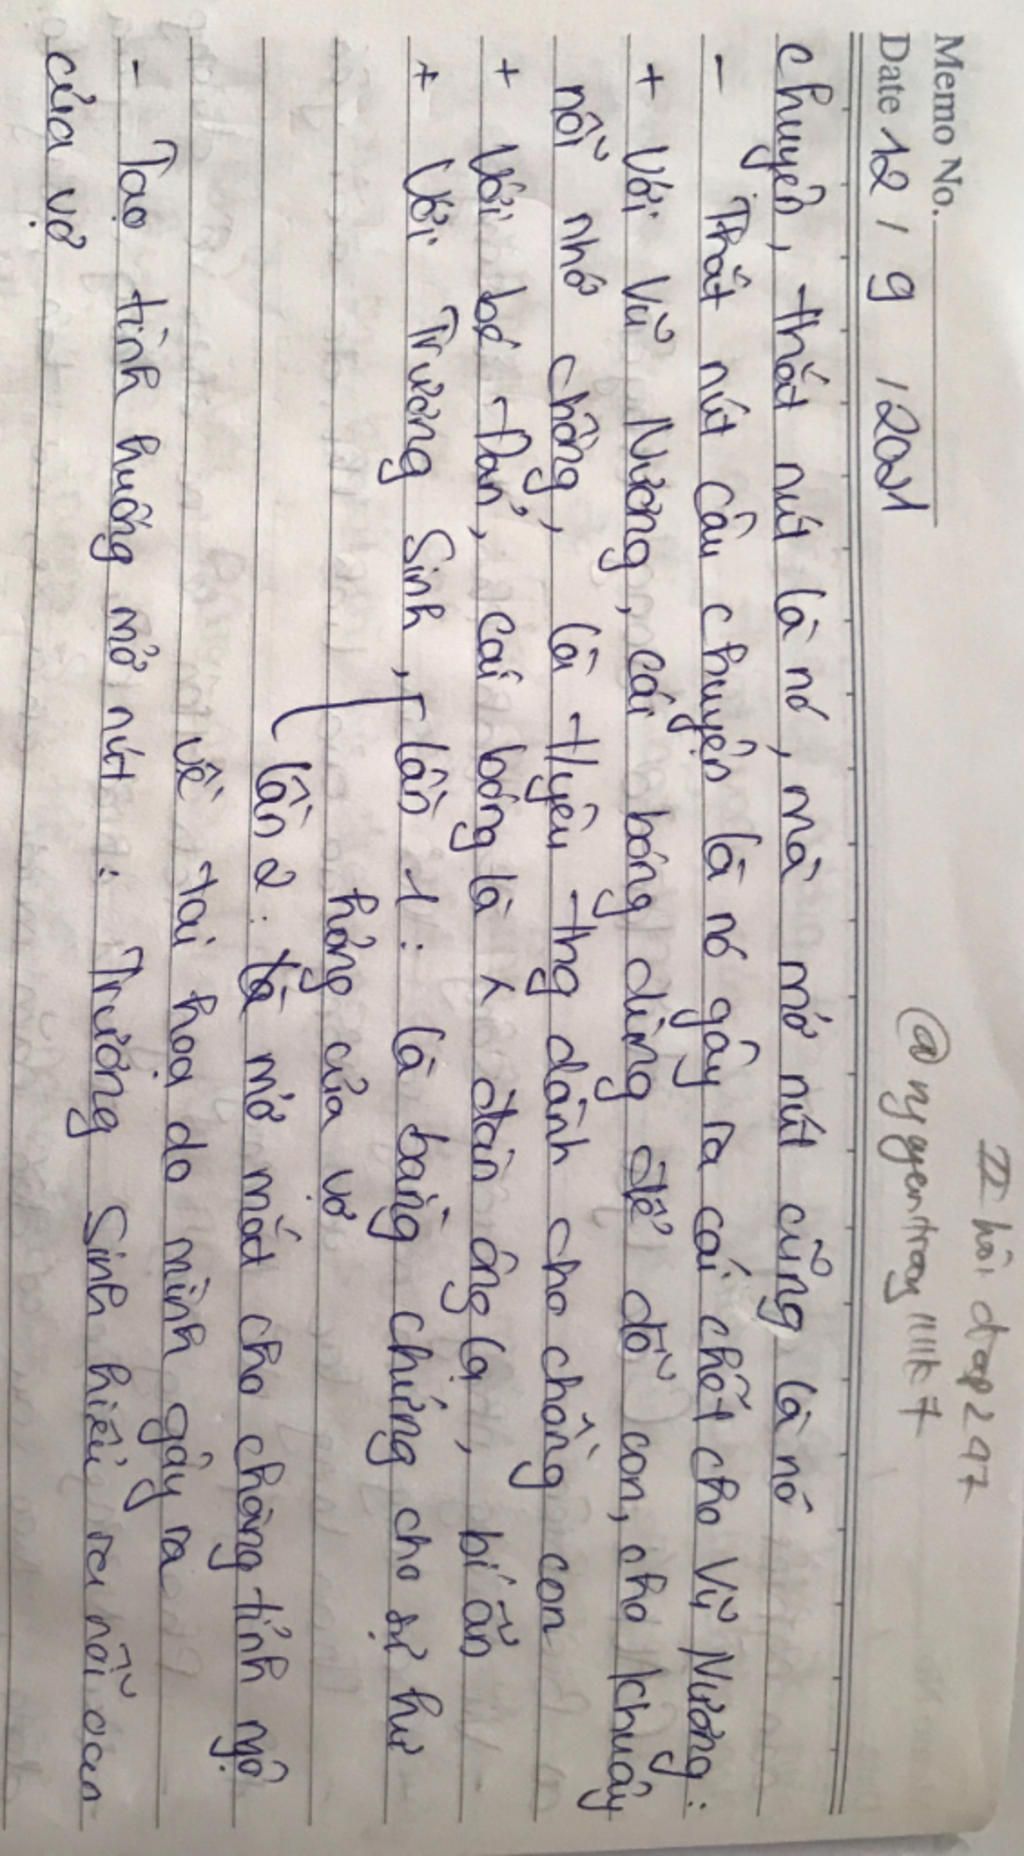 Memo No.
Date 12 / 9 / 2021
hỏi đáp 247
chuyện, thắt nút là nó, mà mở nút cũng là nó
- Thắt nút câu chuyện là nó gây ra cái chết cho Vũ Nương:
+ Với Vũ Nương, cái bóng dùng để dỗ con, cho khuây
nỗi nhớ chồng, là t/yêu thg dành cho chồng con
+ Với bé Đản, cái bóng là 1 đàn ông lạ, bí ẩn
+ Với Trương Sinh, lần 1: là bằng chứng cho sự hư
hỏng của vợ
lần 2: mở mắt cho chàng tỉnh ngộ
về tai hoạ do mình gây ra
- Tạo tình huống mở nút: Trương Sinh hiểu ra nỗi oan
của vợ